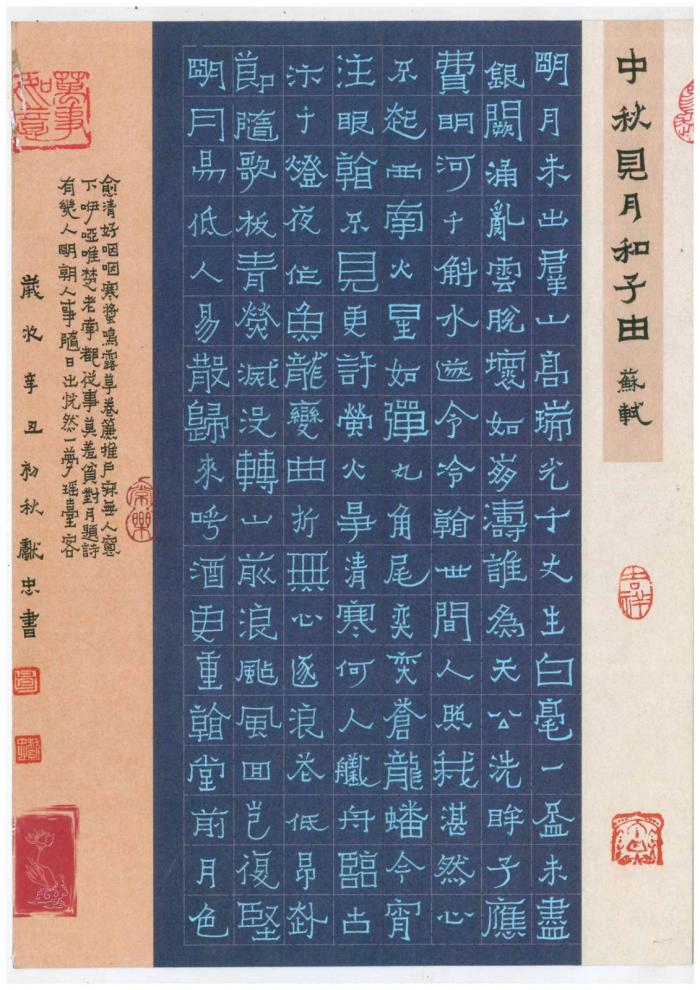 中秋見月和子由 蘇軾
明月未出羣山高瑞光千丈生白毫一盃未盡
銀闕涌亂雲脫壞如崩濤誰為天公洗眸子應
費明河千斛水遂令冷看世間人照我湛然心
不起西南火星如彈丸角尾奕奕蒼龍蟠今宵
注眼看不見更許螢火爭清寒何人艤舟臨古
汴千燈夜作魚龍變曲折無心逐浪花低昂赴
節隨歌板青熒滅沒轉山前浪颭風回豈復堅
明月易低人易散歸來呼酒更重看堂前月色
愈清好咽咽寒螿鳴露草卷簾推戶寂無人窗
下咿啞唯楚老南都從事莫羞貧對月題詩
有幾人明朝人事隨日出恍然一夢瑤臺客
歲次辛丑初秋獻忠書
萬事如意
常樂
吉祥